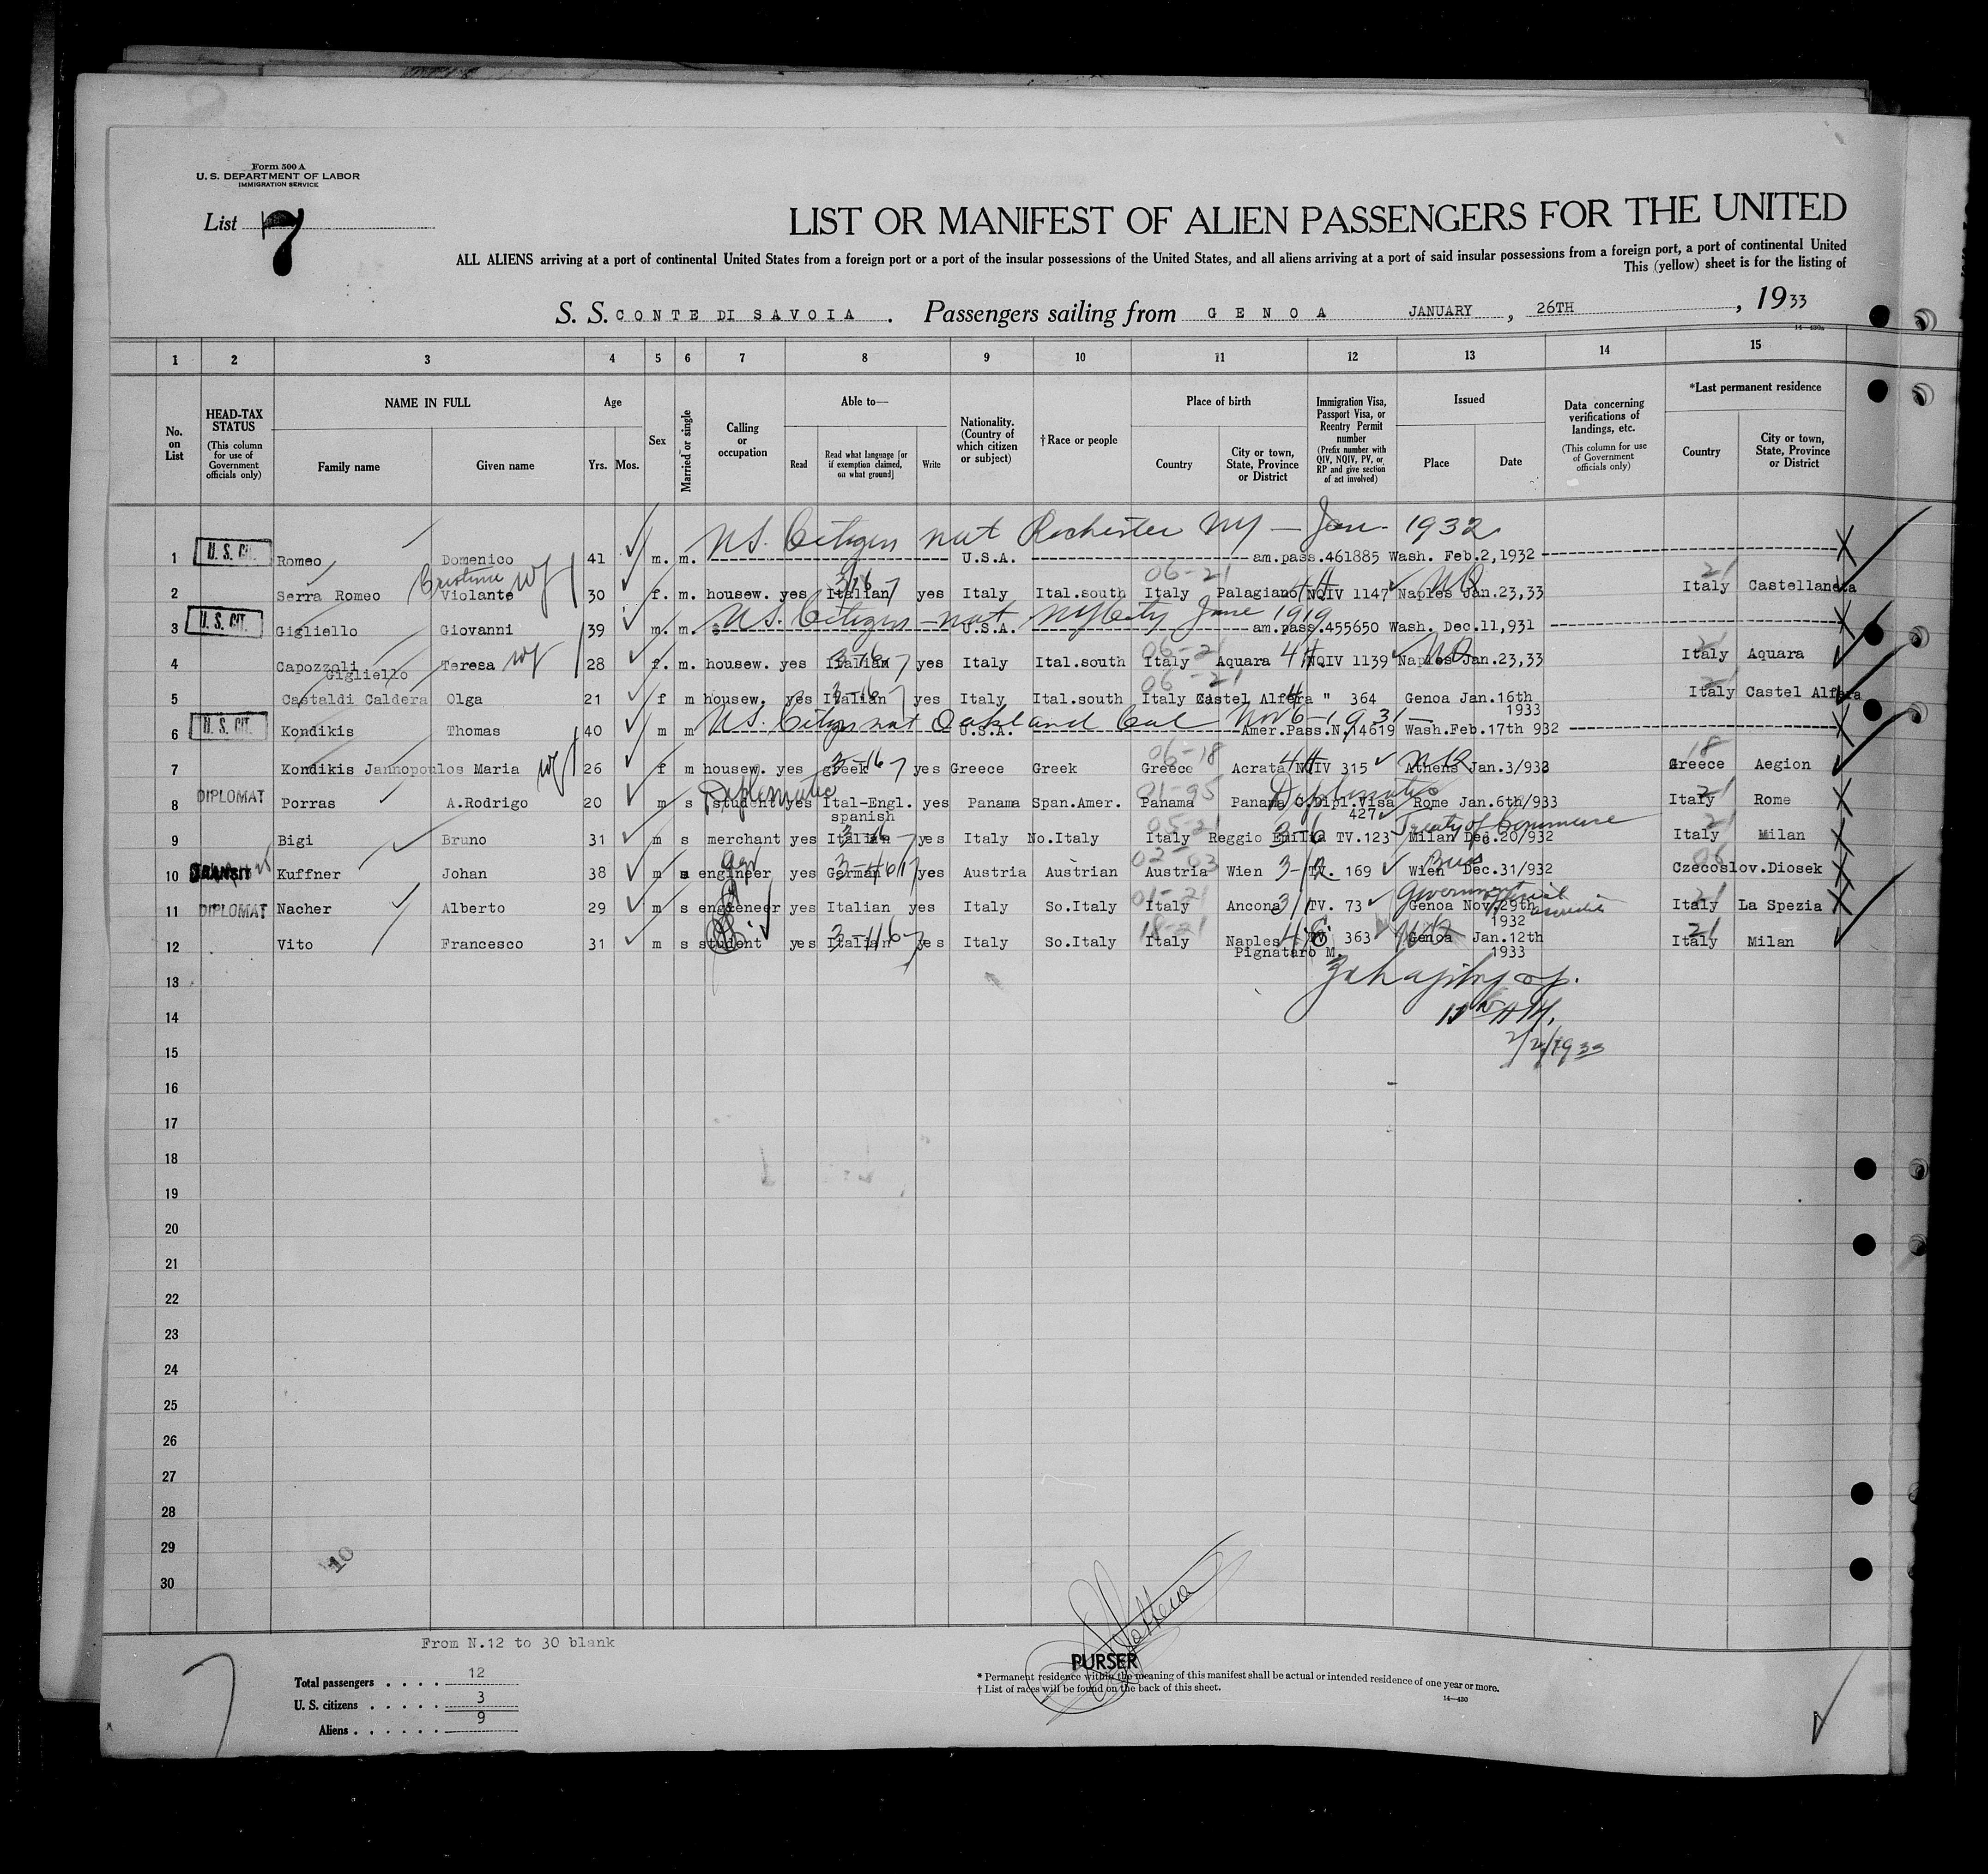 Form 500 A
U. S. DEPARTMENT OF LABOR
IMMIGRATION SERVICE
List 7
LIST OR MANIFEST OF ALIEN PASSENGERS FOR THE UNITED
ALL ALIENS arriving at a port of continental United States from a foreign port or a port of the insular possessions of the United States, and all aliens arriving at a port of said insular possessions from a foreign port, a port of continental United
This (yellow) sheet is for the listing of
S. S. CONTE DI SAVOIA . Passengers sailing from GENOA JANUARY , 26TH , 1933
1 2 3 4 5 6 7 8 9 10 11 12 13 14 15
No. on List
HEAD-TAX STATUS (This column for use of Government officials only)
NAME IN FULL Family name Given name
Age Yrs. Mos.
Sex
Married or single
Calling or occupation
Able to— Read Read what language [or if exemption claimed, on what ground] Write
Nationality. (Country of which citizen or subject)
†Race or people
Place of birth Country City or town, State, Province or District
Immigration Visa, Passport Visa, or Reentry Permit number (Prefix number with QIV, NQIV, PV, or RP and give section of act involved)
Issued Place Date
Data concerning verifications of landings, etc. (This column for use of Government officials only)
*Last permanent residence Country City or town, State, Province or District
US. Citizen nat Rochester NY — Jan - 1932
1 U. S. CIT. Romeo Domenico 41 m. m. U.S.A. am.pass.461885 Wash. Feb.2,1932
Cristina wf 06-21
2 Serra Romeo Violante 30 f. m. housew. yes Italian yes Italy Ital.south Italy Palagiano NQIV 1147 Naples Jan.23,33 Italy Castellaneta
US. Citizen nat NY City June 1919
3 U. S. CIT. Gigliello Giovanni 39 m. m. U.S.A. am.pass.455650 Wash. Dec.11,931
4 Capozzoli Gigliello Teresa wf 28 f. m. housew. yes Italian yes Italy Ital.south Italy Aquara NQIV 1139 Naples Jan.23,33 Italy Aquara
5 Castaldi Caldera Olga 21 f m housew. yes Italian yes Italy Ital.south Italy Castel Alfera " 364 Genoa Jan.16th 1933 Italy Castel Alfera
US. Citizen nat Oakland Cal Nov 6-1931
6 U. S. CIT. Kondikis Thomas 40 m m U.S.A. Amer.Pass.N.14619 Wash.Feb.17th 932
7 Kondikis Jannopoulos Maria wf 26 f m housew. yes greek yes Greece Greek Greece Acrata NQIV 315 Athens Jan.3/933 Greece Aegion
Diplomatic 01-95 Diplomatic
8 DIPLOMAT Porras A.Rodrigo 20 m s student yes Ital-Engl. spanish yes Panama Span.Amer. Panama Panama C. Dipl.Visa 427 Rome Jan.6th/933 Italy Rome
05-21 Treaty of Commerce
9 Bigi Bruno 31 m s merchant yes Italian yes Italy No.Italy Italy Reggio Emilia TV.123 Milan Dec.20/932 Italy Milan
02-03 Bus
10 TRANSIT Kuffner Johan 38 m s engineer yes German yes Austria Austrian Austria Wien TV. 169 Wien Dec.31/932 Czecoslov. Diosek
01-21 Government official
11 DIPLOMAT Nacher Alberto 29 m s engeneer yes Italian yes Italy So.Italy Italy Ancona TV. 73 Genoa Nov.29th 1932 Italy La Spezia
18-21
12 Vito Francesco 31 m s student yes Italian yes Italy So.Italy Italy Naples Pignataro M. 363 Genoa Jan.12th 1933 Italy Milan
13
14
15 2/2/1933
16
17
18
19
20
21
22
23
24
25
26
27
28
29
30
10
From N.12 to 30 blank
Total passengers . . . . 12
U. S. citizens . . . . . 3
Aliens . . . . . . 9
PURSER
* Permanent residence within the meaning of this manifest shall be actual or intended residence of one year or more.
† List of races will be found on the back of this sheet.
14—430